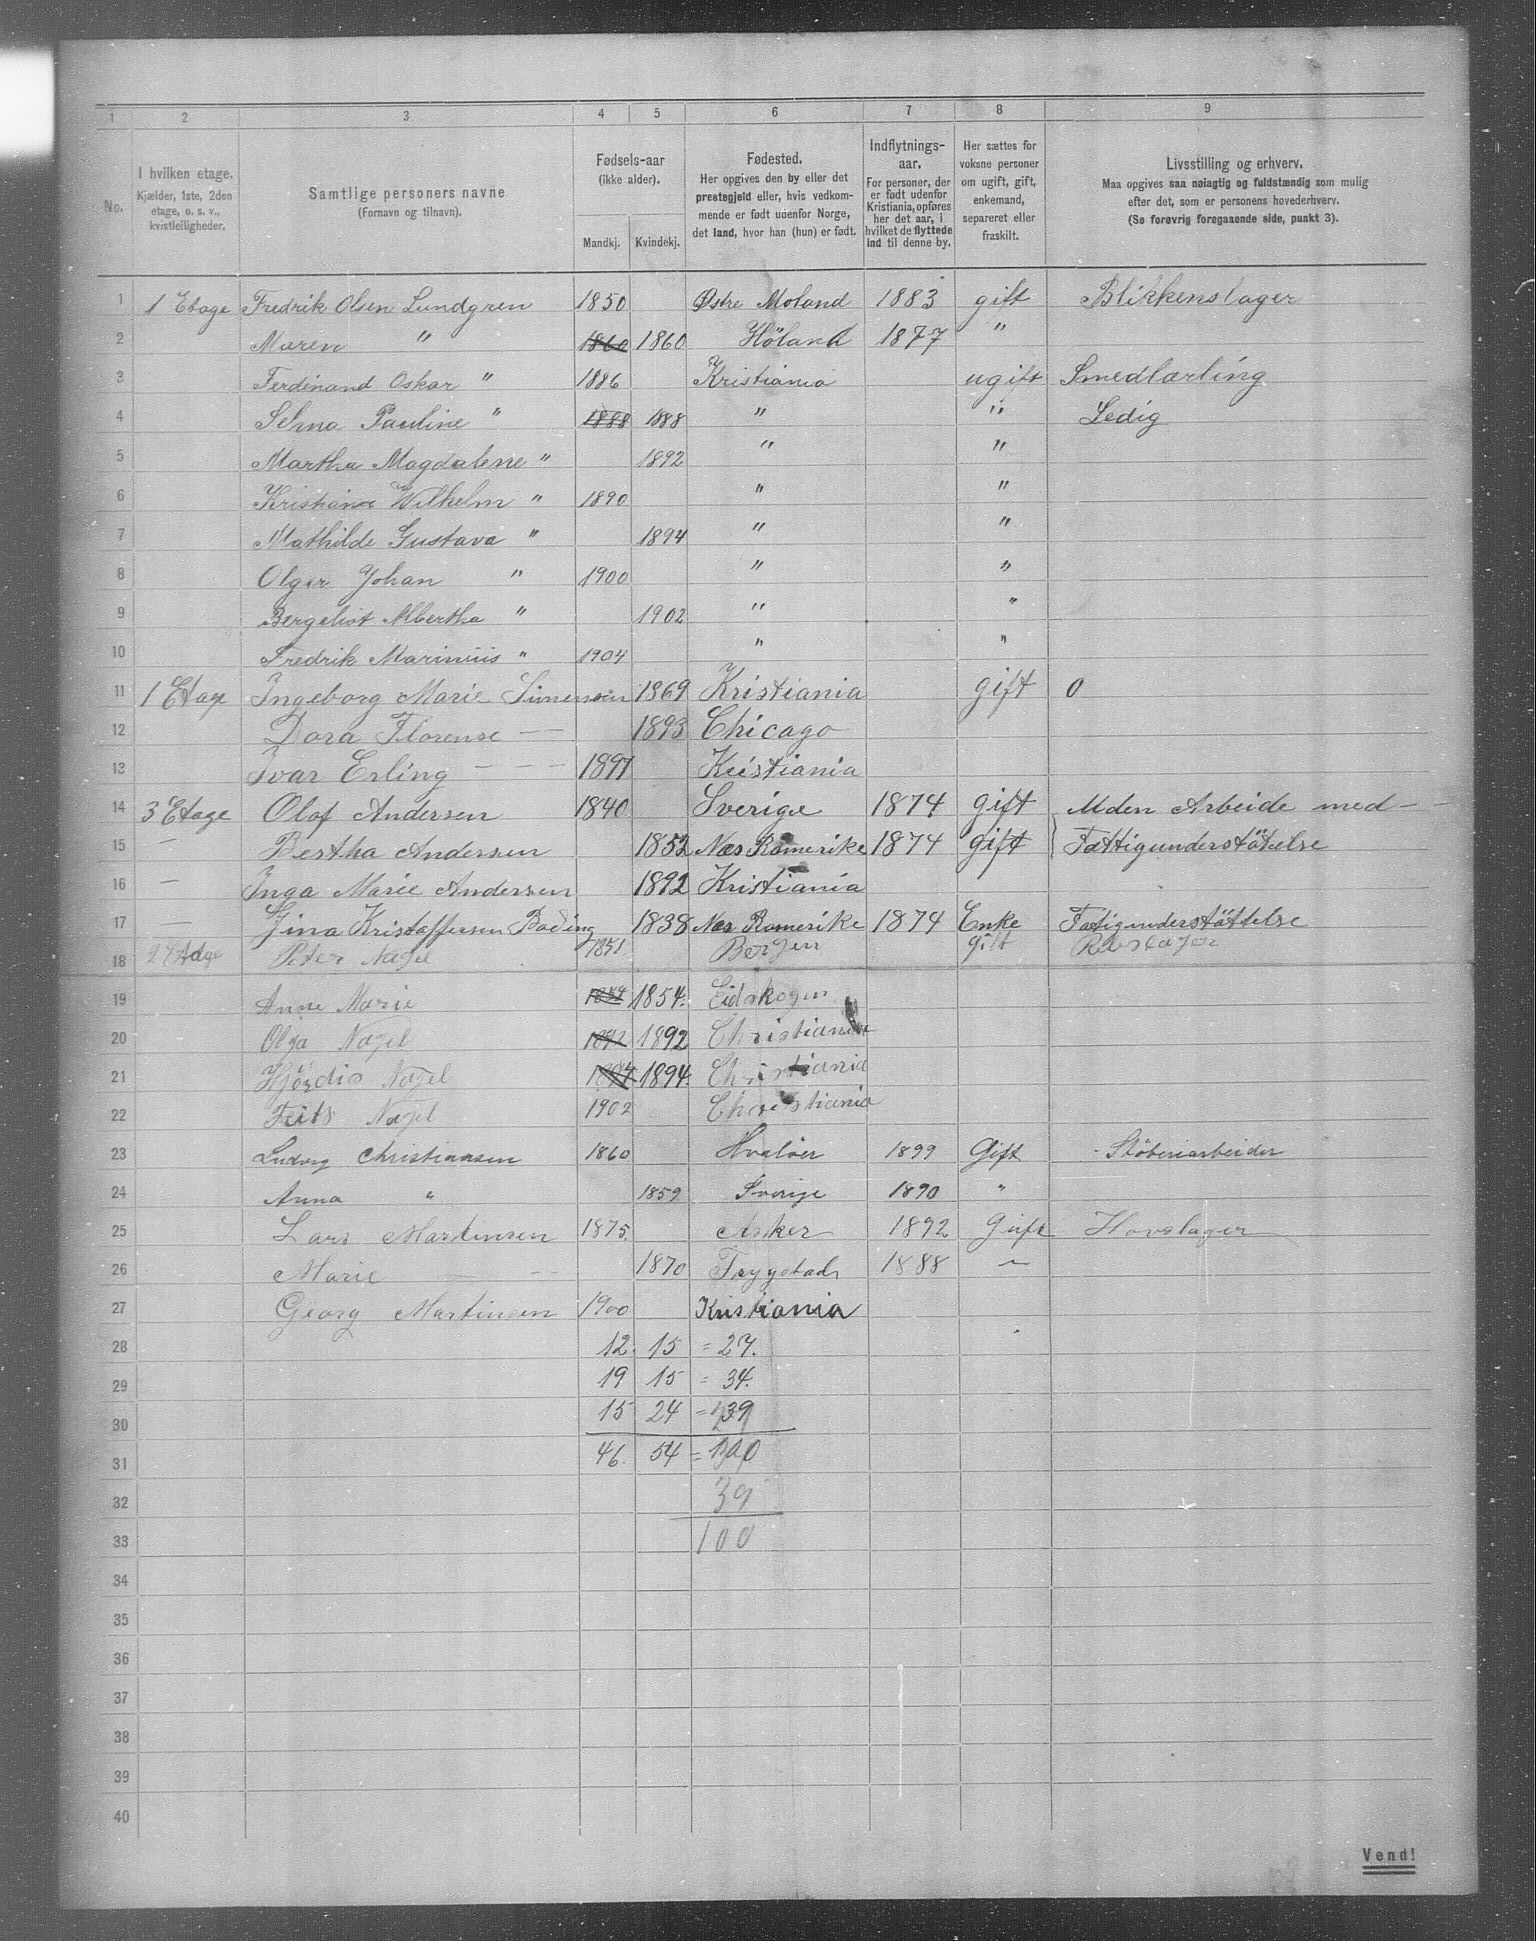 1 2 3 4 5 6 7 8 9
No.
I hvilken etage.
Kjælder, 1ste, 2den
etage, o. s. v.,
kvistleiligheder.
Samtlige personers navne
(Fornavn og tilnavn).
Fødsels-aar
(ikke alder).
Mandkj. Kvindekj.
Fødested.
Her opgives den by eller det
prestegjeld eller, hvis vedkom-
mende er født udenfor Norge,
det land, hvor han (hun) er født.
Indflytnings-
aar.
For personer, der
er født udenfor
Kristiania, opføres
her det aar, i
hvilket de flyttede
ind til denne by.
Her sættes for
voksne personer
om ugift, gift,
enkemand,
separeret eller
fraskilt.
Livsstilling og erhverv.
Maa opgives saa nøiagtig og fuldstændig som mulig
efter det, som er personens hovederhverv.
(Se forøvrig foregaaende side, punkt 3).
1 1 Etage Fredrik Olsen Lundgren 1850 Østre Moland 1883 gift Blikkenslager
2 Maren " 1860 1860 Höland 1877 "
3 Ferdinand Oskar " 1886 Kristiania ugift Smedlærling
4 Selma Pauline " 1888 1888 " " Ledig
5 Martha Magdalene " 1892 " "
6 Kristian Wilhelm " 1890 " "
7 Mathilde Gustava " 1894 " "
8 Olger Johan " 1900 " "
9 Bergeliot Albertha " 1902 " "
10 Fredrik Marinius " 1904 " "
11 1 Etage Ingeborg Marie Simensen 1869 Kristiania gift 0
12 Dora Florense — 1893 Chicago
13 Ivar Erling — — — 1897 Kristiania
14 3 Etage Olof Andersen 1840 Sverige 1874 gift Uden Arbeide med —
15 — Bertha Andersen 1852 Næs Romerike 1874 gift Fattigunderstötelse
16 — Inga Marie Andersen 1892 Kristiania
17 — Gina Kristaffersen Boding 1838 Næs Romerike 1874 Enke Fatigunderstöttelse
18 2 Etage Peter Nagel 1851 Bergen gift Rebslager
19 Anne Marie 1854 1854. Eidskogen
20 Olga Nagel 1892 1892 Christiania
21 Hjördis Nagel 1894 1894. Christiania
22 Frits Nagel 1902 Christiania
23 Ludvig Christiansen 1860 Hvaløer 1899 Gift Stöberiarbeider
24 Anna " 1859 Sverige 1890 "
25 Lars Martinsen 1875. Asker 1892 Gift Hovslager
26 Marie — 1870 Trygstad 1888 —
27 Georg Martinsen 1900 Kristiania
28 12. 15 = 27.
29 19 15 = 34.
30 15 24 = 39
31 46. 54 = 100
32 39
33 100
34
35
36
37
38
39
40
Vend!